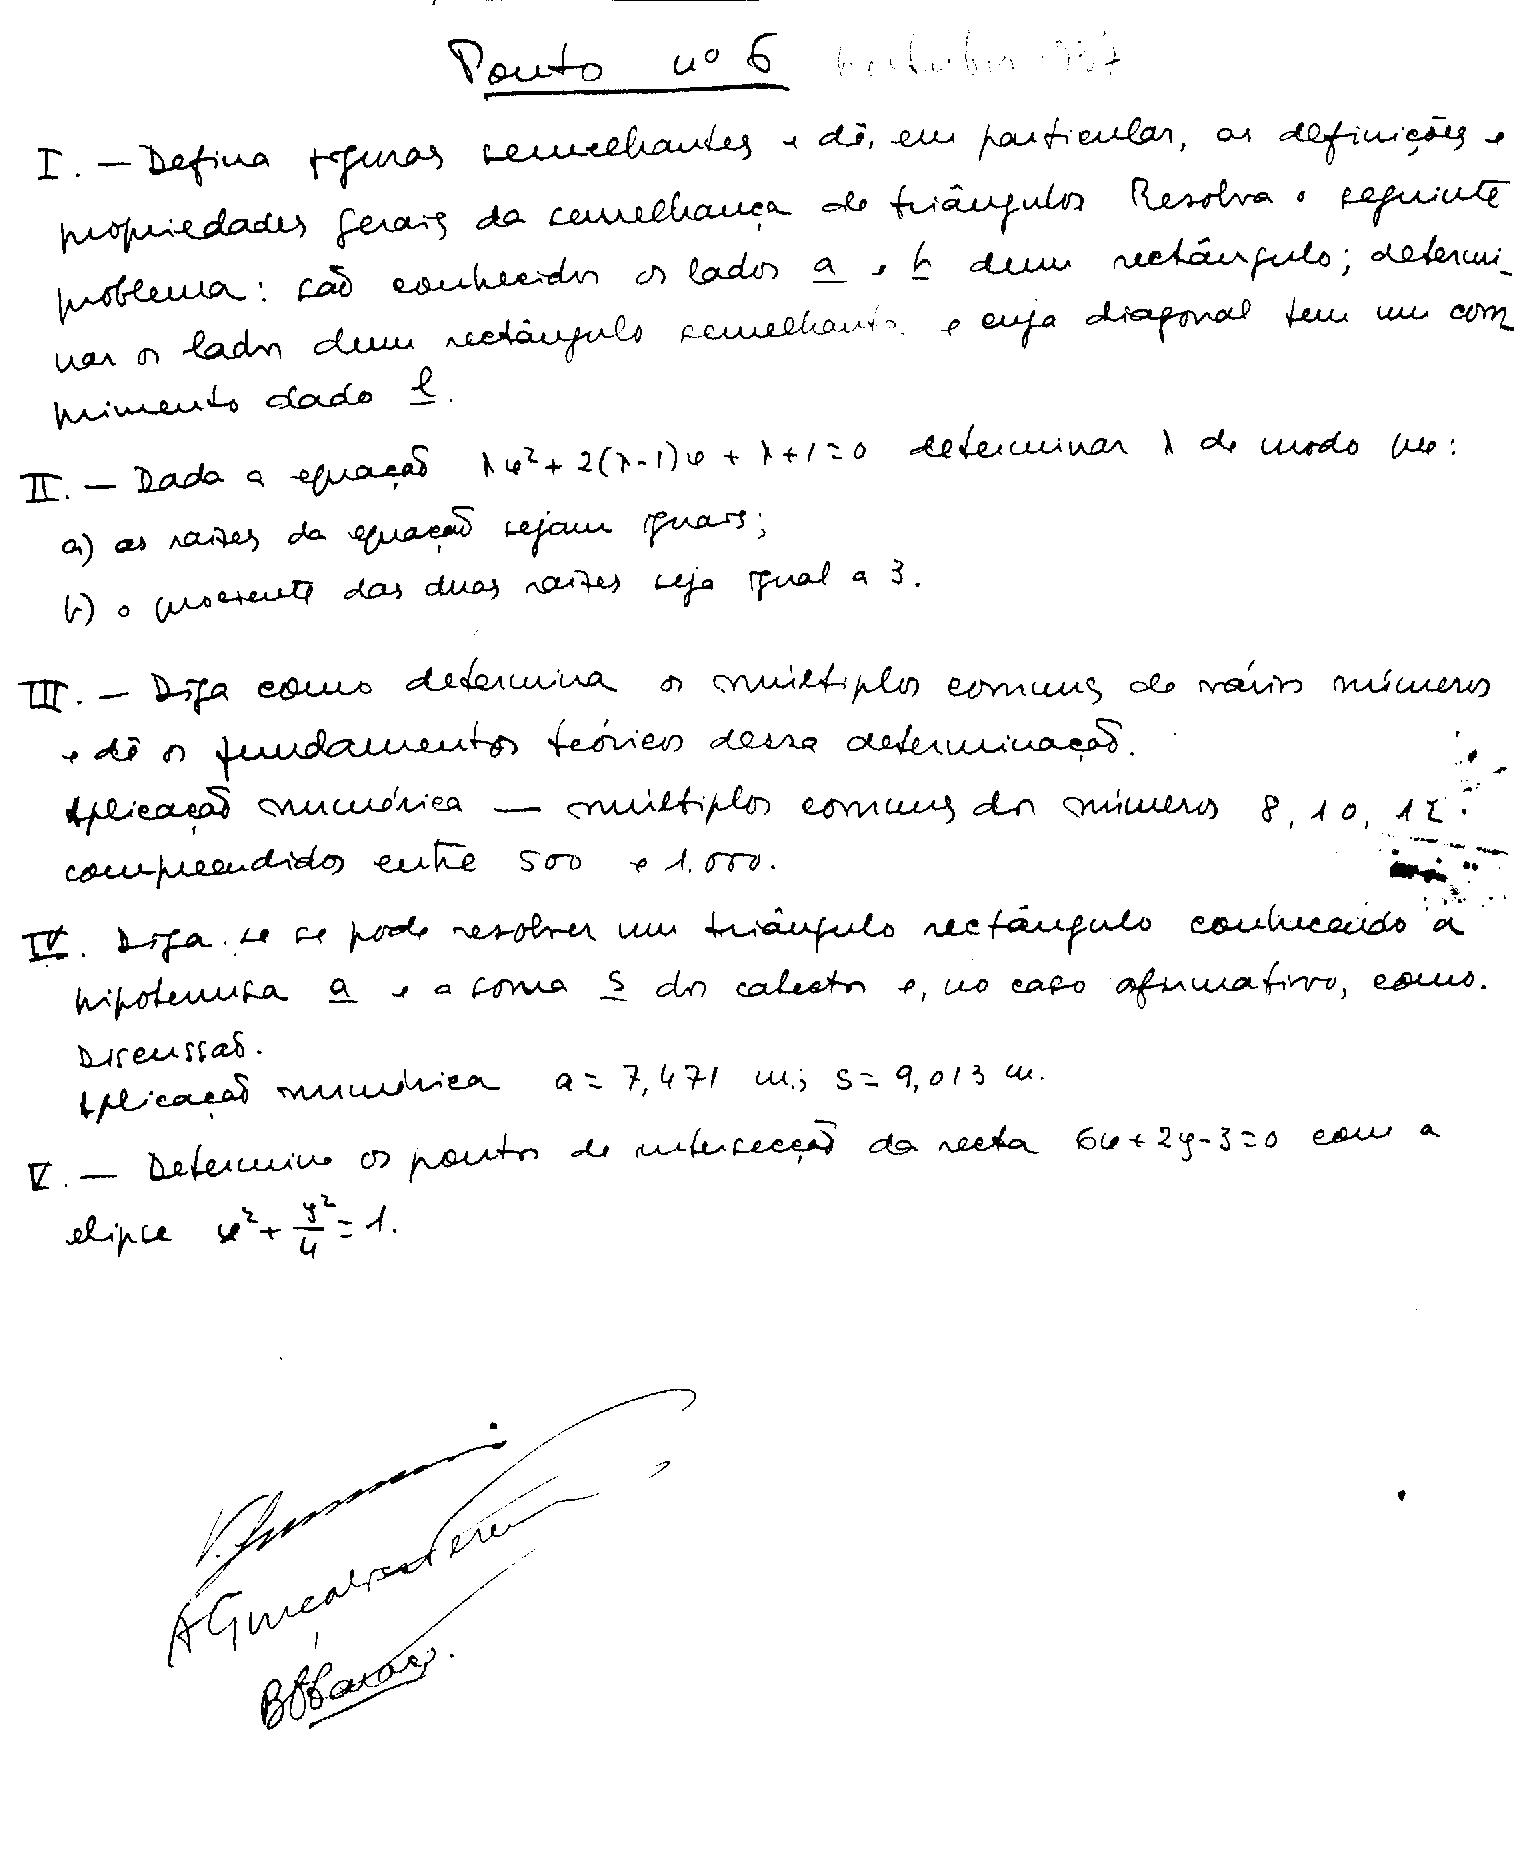 Ponto nº 6
I. — Defina figuras semelhantes e dê, em particular, as definições e
propriedades gerais da semelhança de triângulos Resolva o seguinte
problema: são conhecidos os lados a e b dum rectângulo; determi-
nar os lados dum rectângulo semelhante e cuja diagonal tem um com
primento dado l.
II. — Dada a equação λx²+2(λ-1)x+λ+1=0 determinar λ de modo que:
a) as raízes da equação sejam iguais;
b) o quociente das duas raízes seja igual a 3.
III. — Diga como determina os múltiplos comuns de vários números
e dê os fundamentos teóricos dessa determinação.
Aplicação numérica — múltiplos comuns dos números 8, 10, 12
compreendidos entre 500 e 1.000.
IV. Diga se se pode resolver um triângulo rectângulo conhecendo a
hipotenusa a e a soma s dos catectos e, no caso afirmativo, como.
Discussão.
Aplicação numérica a = 7,471 m.; s = 9,013 m.
V. — Determine os pontos de intersecção da recta 6x+2y-3=0 com a
elipse x²+y²/4=1.